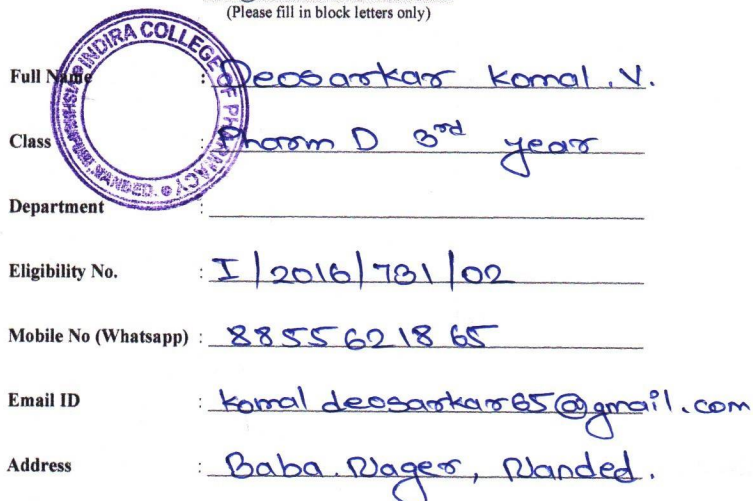 (Please fill in block letters only)
INDIRA COLLEGE OF PHARMACY NANDED.
Full Name : Deosarkar Komal .V.
Class : Pharm D 3rd year
Department :
Eligibility No. : I/2016/781/02
Mobile No (Whatsapp) : 8855621865
Email ID : komaldeosarkar65@gmail.com
Address : Baba. Nager, Nanded.